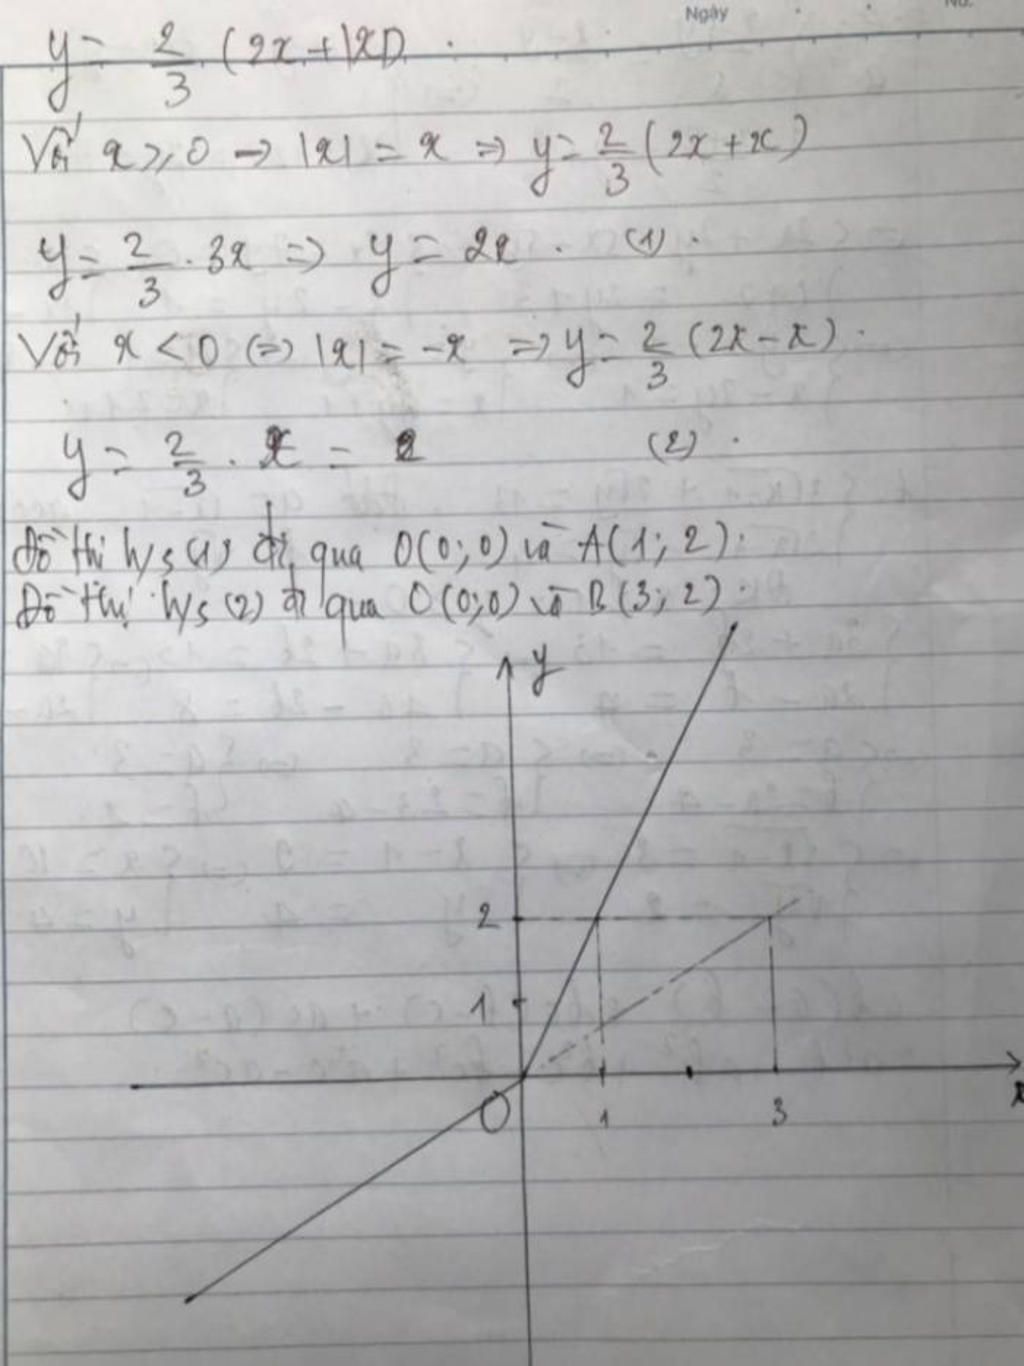 Ngày No.
y = 2/3 (2x + |x|).
Với x ≥ 0 → |x| = x => y = 2/3 (2x + x)
y = 2/3 . 3x => y = 2x. (1).
Với x < 0 (=> |x| = -x => y = 2/3 (2x - x).
y = 2/3 . x = (2).
Đồ thị h/s (1) đi qua O(0; 0) và A(1; 2).
Đồ thị h/s (2) đi qua O(0; 0) và B(3; 2).
y
2
1
O 1 3 x